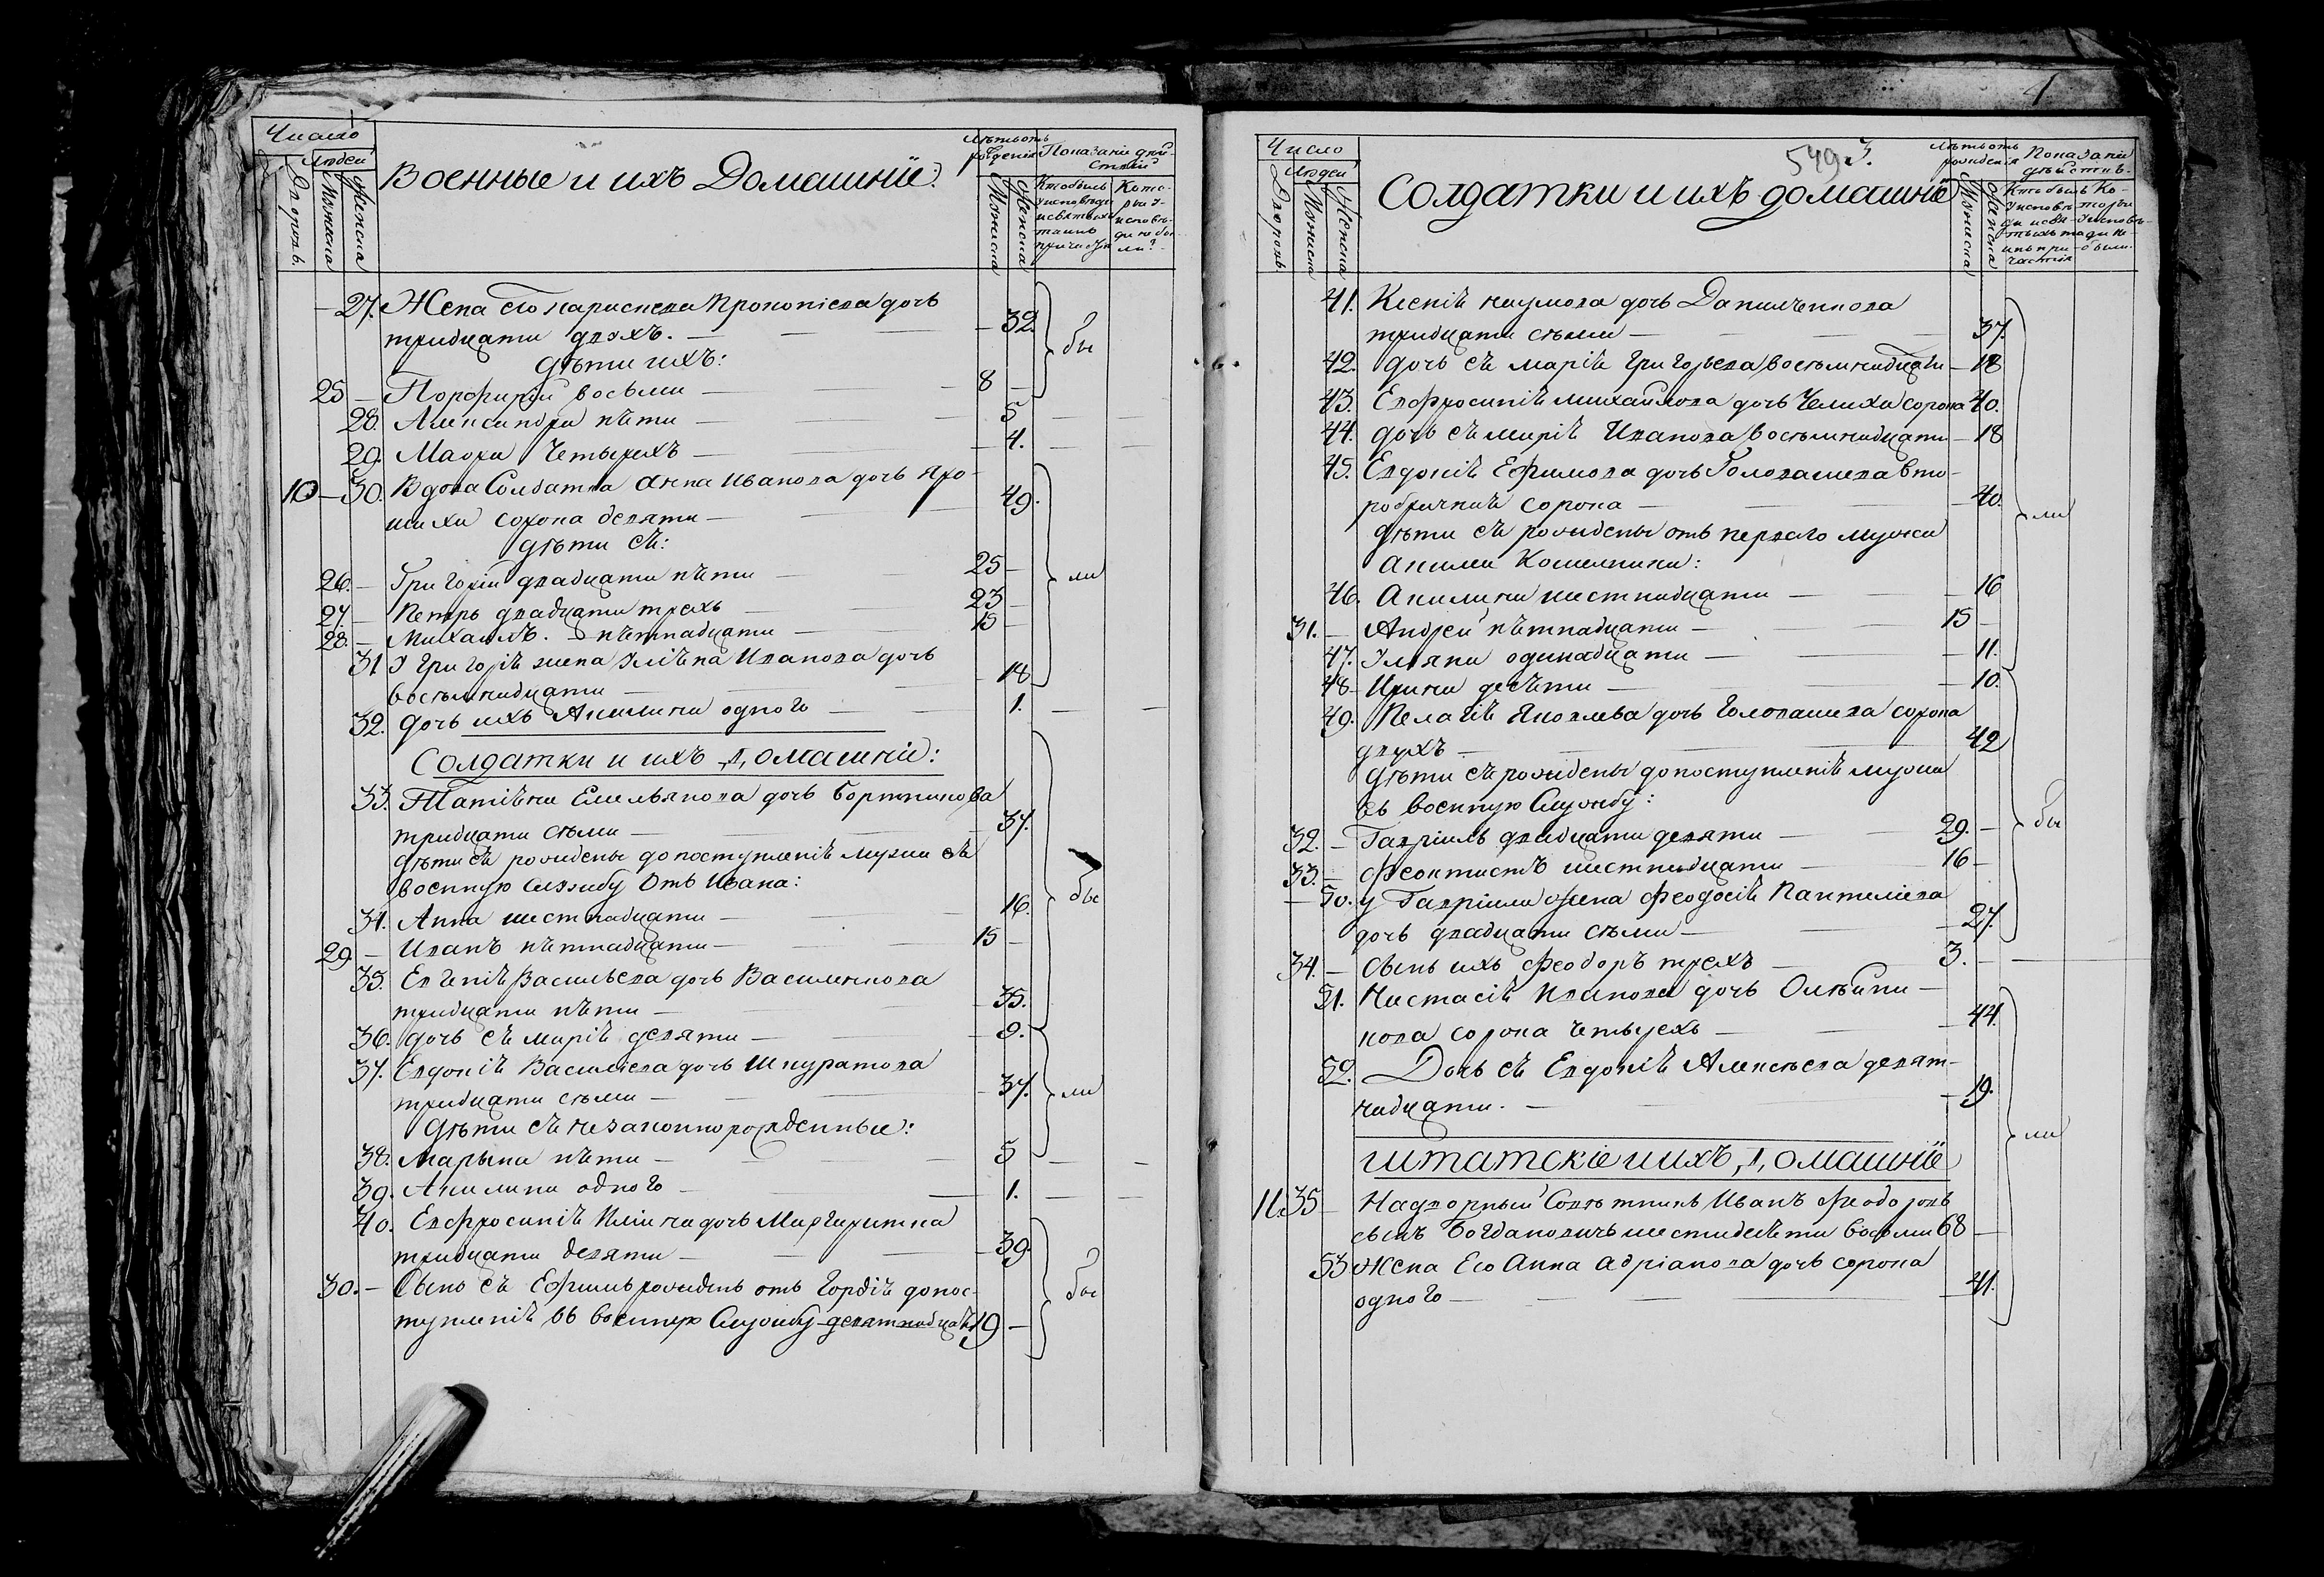 Число
Людей
Дворовъ.
Мужеска
Женска
Военные и ихъ Домашнiе:
Лѣтъ отъ рожденiя
Мужеска
Женска
Показанiе дѣйствiй
Кто былъ у исповѣди и святыхъ таинъ причастiя
Которые у исповѣди не были?
27. Жена его Параскева Прокопiева дочь
тридцати двохъ. — 32. бы
дѣти ихъ:
25 — Порфирiй восьми — 8 —
28. Александра пѣти — 5
29. Мавра Четырехъ — 4.
10 — 30. Вдова Солдатка Анна Иванова дочь Яро-
шиха сорока девяти — 49.
дѣти еѣ:
26. — Григорiй двадцати пѣти — 25 — ли
27. — Петръ двадцати трехъ — 23 —
28. — Михаилъ. — пѣтнадцати — 15 —
31 У Григорiѣ жена Улiѣна Иванова дочь
восѣмнадцати — 18
32. дочь ихъ Акилина одного — 1.
Солдатки и ихъ Домашнiи:
33. Татiѣна Емельянова дочь Бортникова
тридцати сѣми — 37.
дѣти еѣ рождены до поступленiѣ мужа еѣ
военную службу Отъ Ивана: бы
34. Анна шестнадцати — 16.
29. — Иванъ пѣтнадцати — 15 —
35. Евгенiѣ Васильева дочь Василенкова
тридцати пѣти — 35.
36. дочь еѣ Марiѣ девяти — 9.
37. Евдокiѣ Василiева дочь Шкуратова
тридцати сѣми — 37. ли
Дѣти еѣ незаконнорожденные:
38. Марьяна пѣти — 5
39. Акилина одного — 1.
40. Евфросинiѣ Илiина дочь Маргаритка
тридцати девяти — 39.
30. — Сынъ еѣ Ефимъ рожденъ отъ Гордiѣ до пос- бы
тупленiѣ въ военную Службу девятнадцати 19 —
549 3.
Число
Людей
Дворовъ
Мужеска
Женска
Солдатки и ихъ домашнiѣ
Лѣтъ отъ рожденiя
Мужеска
Женска
Показанiе дѣйствiѣ.
Кто былъ у исповѣди и святыхъ таинъ причастiя
Которые у исповѣди не были.
41. Ксенiѣ Наумова дочь Данильченкова
тридцати сѣми — 37.
42. дочь еѣ Марiѣ Григорьева восѣмнадцати — 18
43. Евфросинiѣ Михайлова дочь Челиха сорока 40.
44. дочь еѣ Марiѣ Иванова восѣмнадцати — 18
45. Евдокiѣ Ефимова дочь Головашева вто-
робрачнаѣ сорока — 40. ли
дѣти еѣ рождены отъ перваго мужа
Акима Кошемяки:
46. Акилина шестнадцати — 16
31. — Андрей пѣтнадцати — 15
47. Ульяна одинадцати — 11.
48 — Ирина десѣти — 10.
49. Пелагiѣ Яковлева дочь Головашева сорока
двухъ — 42
дѣти еѣ рождены до поступленiѣ мужа
въ военную Службу:
32. — Гаврiилъ двадцати девяти — 29. — бы
33. — Феоктистъ шестнадцати — 16 —
— 50. у Гаврiила жена Феодосiѣ Пантелiева
дочь двадцати сѣми — 27.
34. — Сынъ ихъ Феодоръ трехъ — 3. —
51. Настасiѣ Иванова дочь Олѣйни-
кова сорока четырехъ — 44.
52. Дочь еѣ Евдокiѣ Алексѣева девят-
надцати. — 19.
ли
Штатскiе и ихъ Домашнiѣ
11. 35 — Надворный Совѣтникъ Иванъ Феодоровъ
сынъ Богдановичъ шестидесѣти восѣми 68 —
53 Жена Его Анна Адрiанова дочь сорока
одного — 41.